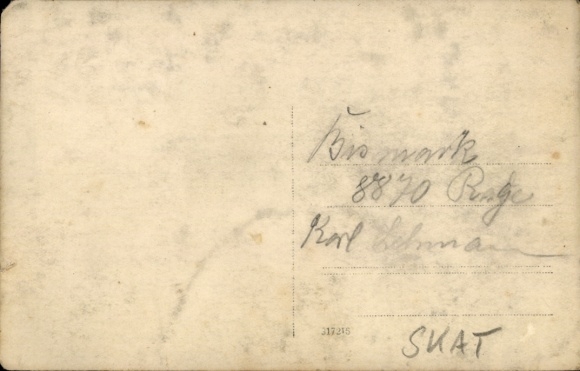 Bismark
8870 Ridge
Karl Lehman
317215
SKAT